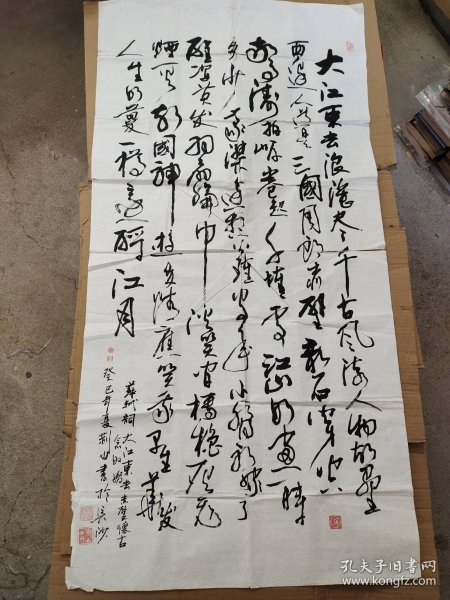 大江東去浪淘尽千古风流人物故壘
西邊人道是三國周郎赤壁亂石穿空
驚濤拍岸卷起千堆雪江山如画一時
多少豪傑遥想公瑾當年小喬初嫁了
雄姿英发羽扇綸巾談笑间檣櫓灰飛
煙滅故國神遊多情應笑我早生華髮
人生如夢一樽還酹江月
蘇軾詞大江東去赤壁懷古
念奴嬌
癸巳年夏書於長沙
孔夫子旧书网
kongfz.com